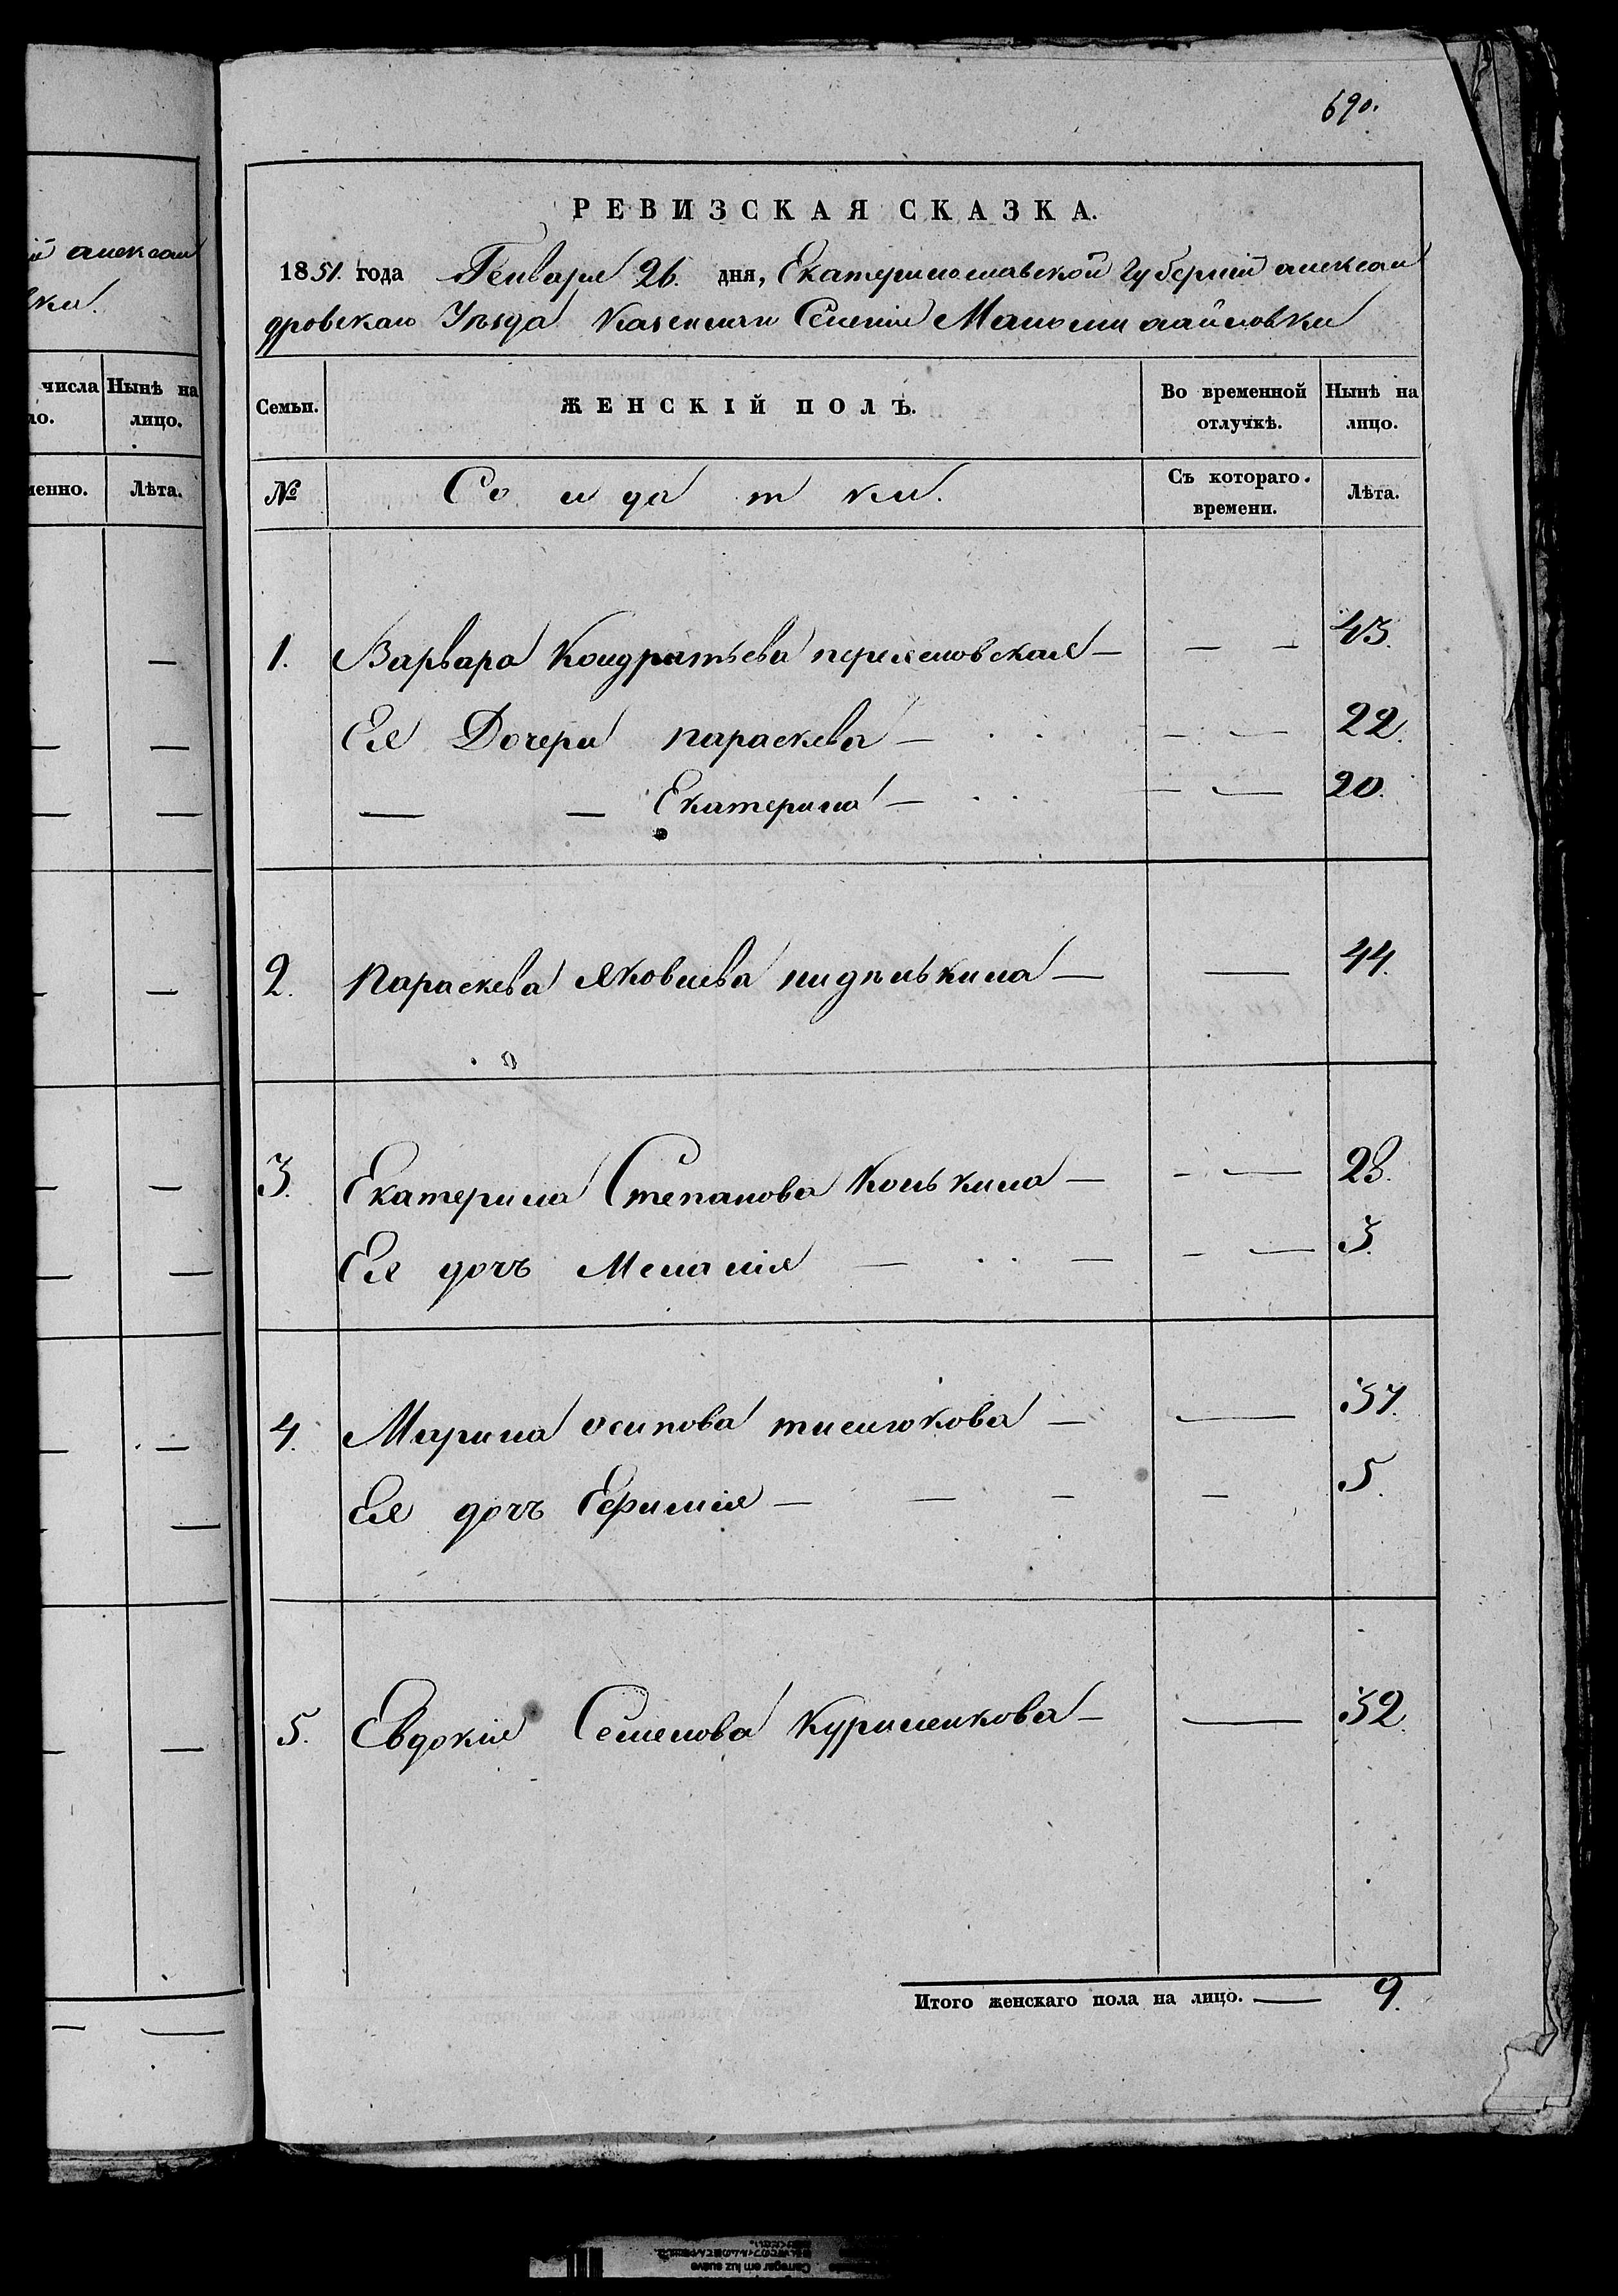 690.
й алексан
вки.
числа Нынѣ на
ло. лицо.
менно. Лѣта.
РЕВИЗСКАЯ СКАЗКА.
1851. года Генваря 26. дня, Екатеринославской Губерніи алексан
дровскаго Уѣзда Казеннаго Селенія Маломихайловки
Семьи. ЖЕНСКІЙ ПОЛЪ. Во временной отлучкѣ. Нынѣ на лицо.
№ Солдатки. Съ котораго времени. Лѣта.
1. Варвара Кондратьева переясловская — — — 43.
Ея Дочери параскева — — — 22.
— — Екатерина — — — 20.
2. Параскева Яковлева пидпѣлькина — — 44.
3. Екатерина Степанова Колькина — — — 28.
Ея дочъ Меланія — — — — 3.
4. Марина осипова тисличкова — — 37.
Ея дочъ Ефимія — — — — 5.
5. Евдокія Семенова Куриленкова — — 32.
Итого женскаго пола на лицо. — 9.